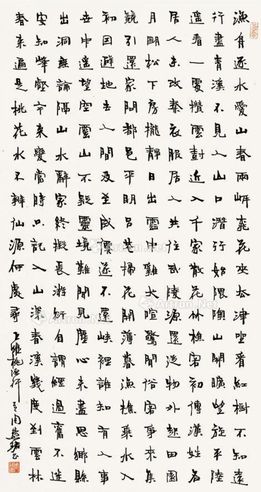 漁舟逐水愛山春兩岸花夾古津坐看紅樹不知遠
行盡青溪不見人山口潛行始隈隩山開曠望旋平陸
遥看一處攢雲樹近入千家散花竹樵客初傳漢姓名
居人未改秦衣服居人共住武陵源還從物外起田園
月明松下房櫳靜日出雲中雞犬喧驚聞俗客爭來集
競引還家問都邑平明閭巷掃花開薄暮漁樵乘水入
初因避地去人間及至成仙遂不還峽裏誰知有人事
世中遥望空雲山不疑靈境難聞見塵心未盡思鄉縣
出洞無論隔山水辭家終擬長游衍自謂經過舊不迷
安知峰壑今來變當時只記入山深青溪幾度到雲林
春來遍是桃花水不辨仙源何處尋 王維桃源行